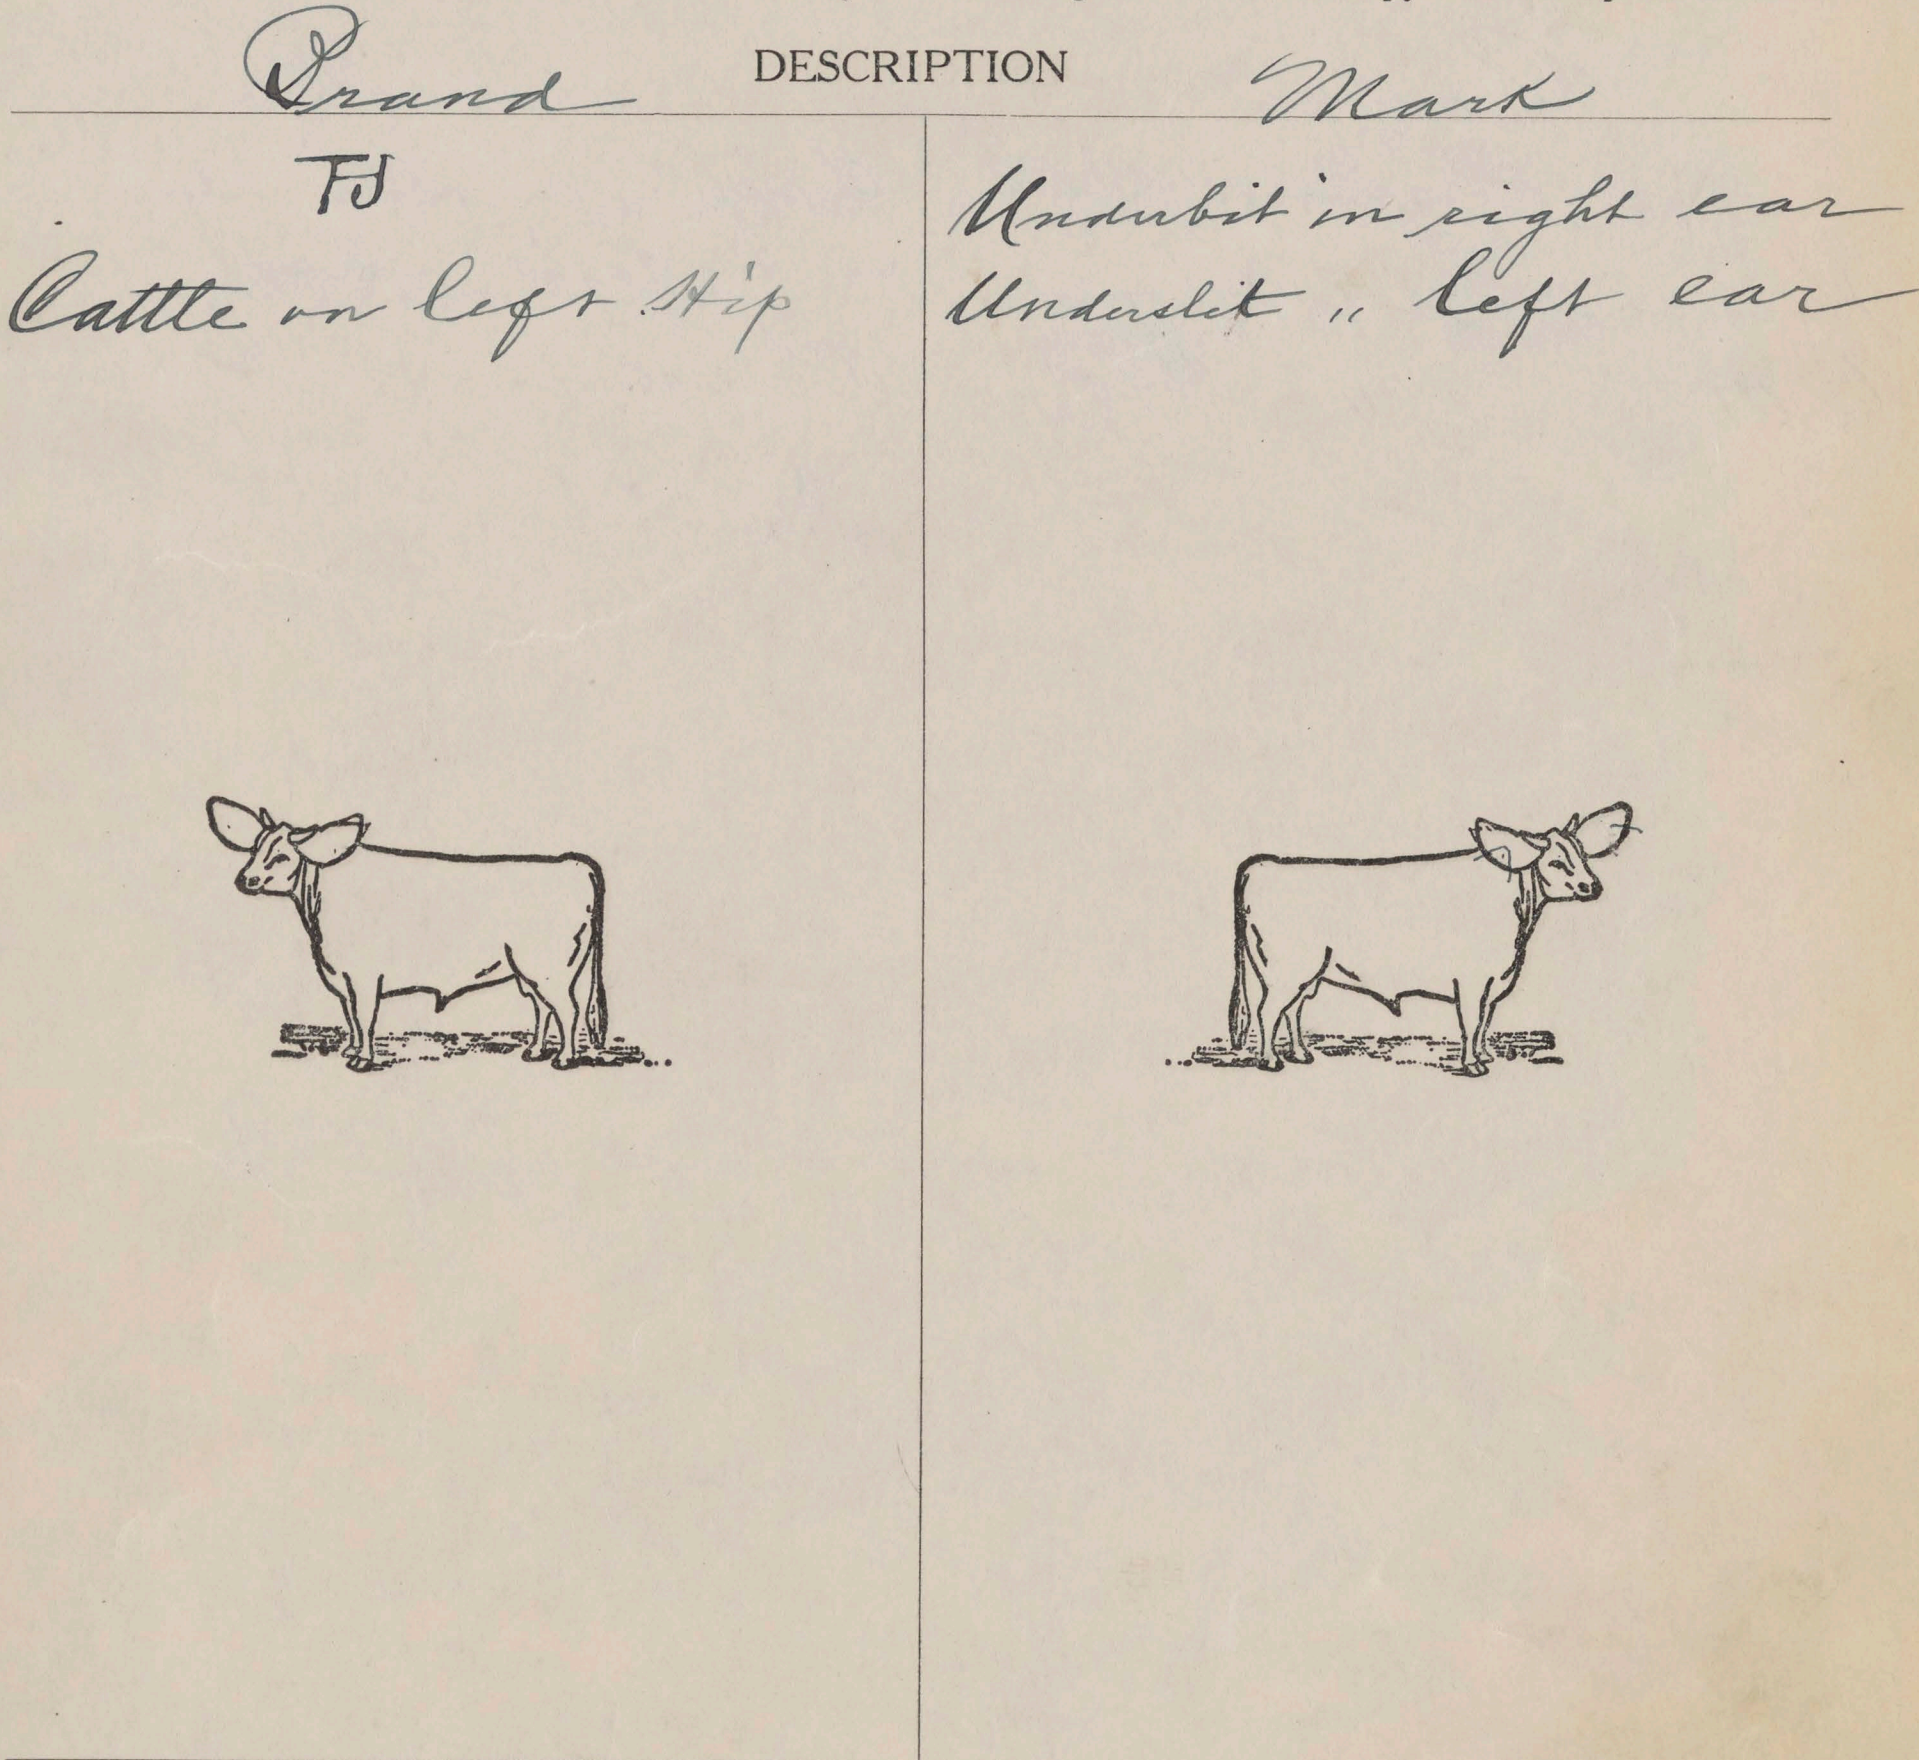 Brand DESCRIPTION Mark
THJ
Cattle on left Hip
Underbit in right ear
Underslit " left ear